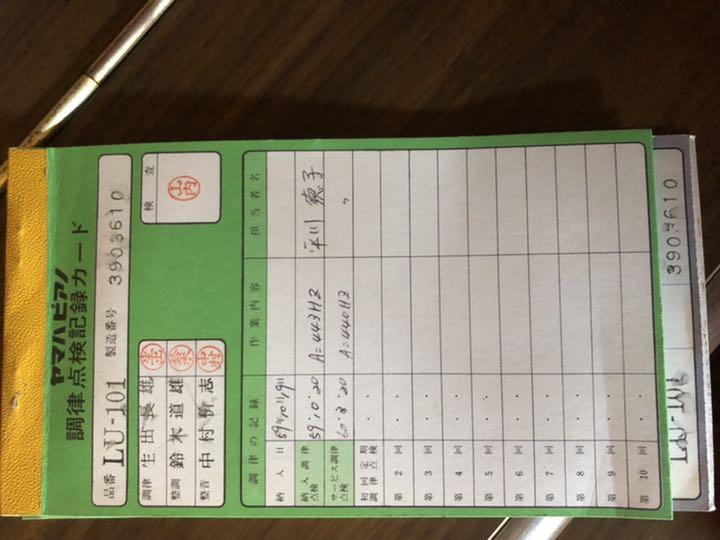 ヤマハピアノ
調律点検記録カード
品番 LU-101 製造番号 3903610
調律 生出長雄
整調 鈴木道雄
整音 中村 志 中村
検査
山内
調律の記録 作業内容 担当者名
納入日
納入調律点検 59.10.20 A=443HZ 平川 恵子
サービス調律点検 60.3.20 A=440HZ 〃
初回定期調律点検 ・ ・
第2回 ・ ・
第3回 ・ ・
第4回 ・ ・
第5回 ・ ・
第6回 ・ ・
第7回 ・ ・
第8回 ・ ・
第9回 ・ ・
第10回 ・ ・
LU-101 3903610